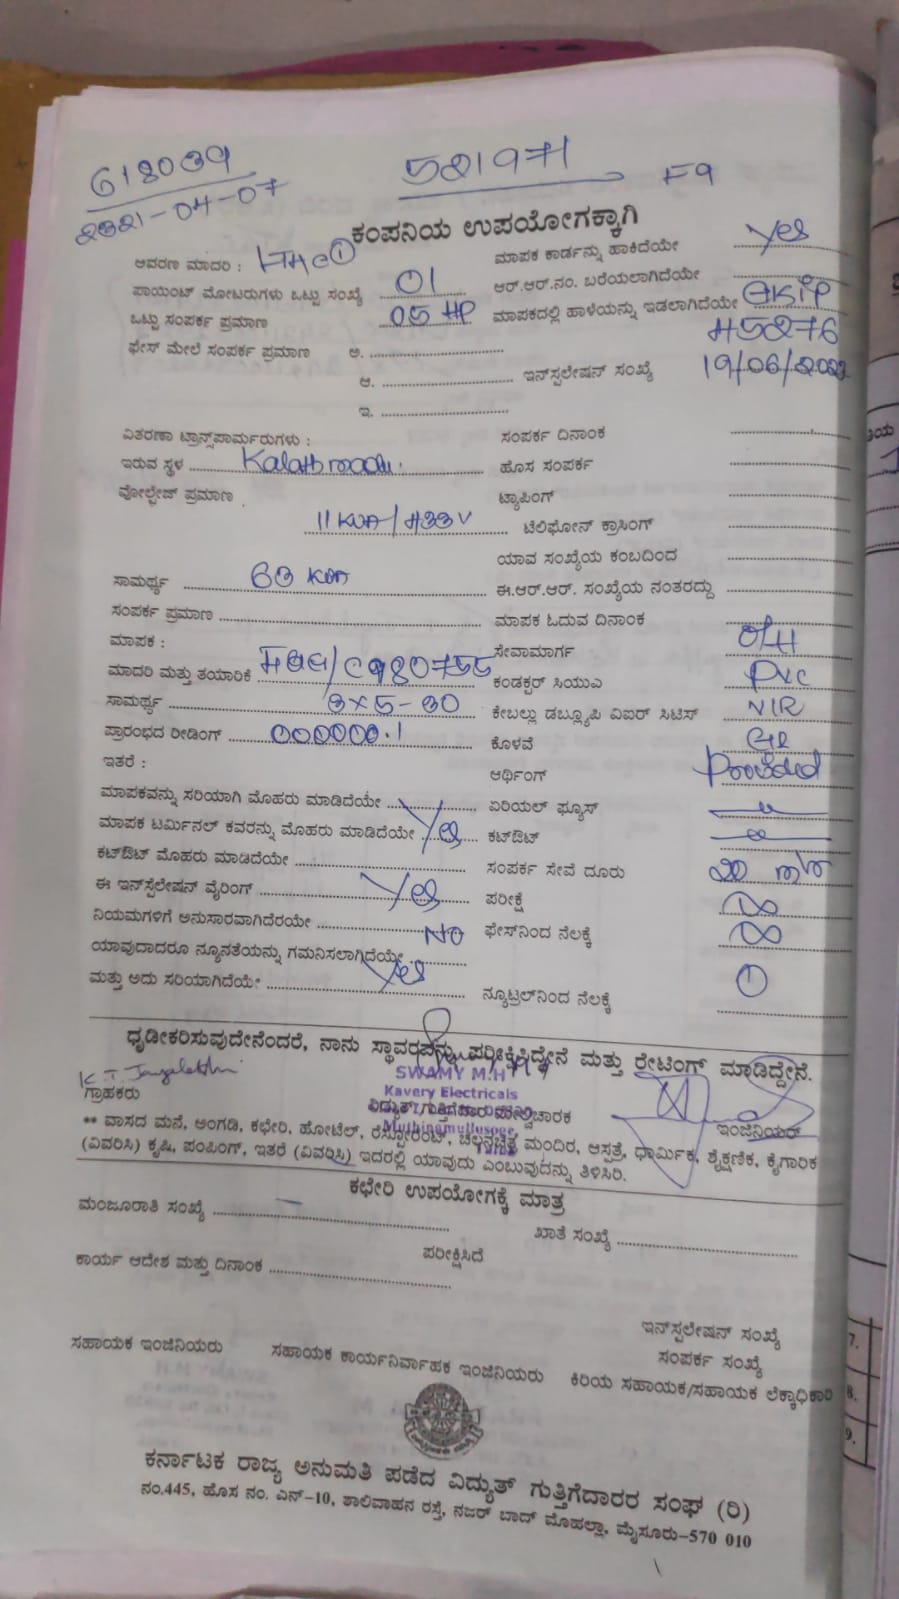 618039
2021-04-07
521971
F9
ಕಂಪನಿಯ ಉಪಯೋಗಕ್ಕಾಗಿ
ಆವರಣ ಮಾದರಿ :
ಮಾಪಕ ಕಾರ್ಡನ್ನು ಹಾಕಿದೆಯೇ Yes
ಪಾಯಿಂಟ್ ಮೋಟರುಗಳು ಒಟ್ಟು ಸಂಖ್ಯೆ 01
ಆರ್.ಆರ್.ನಂ. ಬರೆಯಲಾಗಿದೆಯೇ
ಒಟ್ಟು ಸಂಪರ್ಕ ಪ್ರಮಾಣ 05 HP
ಮಾಪಕದಲ್ಲಿ ಹಾಳೆಯನ್ನು ಇಡಲಾಗಿದೆಯೇ
ಫೇಸ್ ಮೇಲೆ ಸಂಪರ್ಕ ಪ್ರಮಾಣ ಅ.
45276
ಆ.
ಇನ್‌ಸ್ಟಲೇಷನ್ ಸಂಖ್ಯೆ 19/06/2022
ಇ.
ವಿತರಣಾ ಟ್ರಾನ್ಸ್‌ಪಾರ್ಮರುಗಳು :
ಸಂಪರ್ಕ ದಿನಾಂಕ
ಇರುವ ಸ್ಥಳ
ಹೊಸ ಸಂಪರ್ಕ
ವೋಲ್ಟೇಜ್ ಪ್ರಮಾಣ
ಟ್ಯಾಪಿಂಗ್
11 KVA/433V
ಟೆಲಿಫೋನ್ ಕ್ರಾಸಿಂಗ್
ಯಾವ ಸಂಖ್ಯೆಯ ಕಂಬದಿಂದ
ಸಾಮರ್ಥ್ಯ 63 KVA
ಈ.ಆರ್.ಆರ್. ಸಂಖ್ಯೆಯ ನಂತರದ್ದು
ಸಂಪರ್ಕ ಪ್ರಮಾಣ
ಮಾಪಕ ಓದುವ ದಿನಾಂಕ
ಮಾಪಕ :
ಸೇವಾಮಾರ್ಗ O/H
ಮಾದರಿ ಮತ್ತು ತಯಾರಿಕೆ
ಕಂಡಕ್ಟರ್ ಸಿಯುಎ PVC
ಸಾಮರ್ಥ್ಯ 3x5-30
ಕೇಬಲ್ಲು ಡಬ್ಲ್ಯೂಪಿ ವಿಐರ್ ಸಿಟಿಸ್ VIR
ಪ್ರಾರಂಭದ ರೀಡಿಂಗ್ 000000.1
ಕೊಳವೆ GI
ಇತರೆ :
ಆರ್ಥಿಂಗ್ Provided
ಮಾಪಕವನ್ನು ಸರಿಯಾಗಿ ಮೊಹರು ಮಾಡಿದೆಯೇ
ಏರಿಯಲ್ ಫ್ಯೂಸ್
ಮಾಪಕ ಟರ್ಮಿನಲ್ ಕವರನ್ನು ಮೊಹರು ಮಾಡಿದೆಯೇ Yes
ಕಟ್‌ಔಟ್
ಕಟ್‌ಔಟ್ ಮೊಹರು ಮಾಡಿದೆಯೇ
ಸಂಪರ್ಕ ಸೇವೆ ದೂರು
ಈ ಇನ್‌ಸ್ಟೆಲೇಷನ್ ವೈರಿಂಗ್ Yes
ಪರೀಕ್ಷೆ ∞
ನಿಯಮಗಳಿಗೆ ಅನುಸಾರವಾಗಿದೆರಯೇ NO
ಫೇಸ್‌ನಿಂದ ನೆಲಕ್ಕೆ ∞
ಯಾವುದಾದರೂ ನ್ಯೂನತೆಯನ್ನು ಗಮನಿಸಲಾಗಿದೆಯೇ
ಮತ್ತು ಅದು ಸರಿಯಾಗಿದೆಯೇ Yes
ನ್ಯೂಟ್ರಲ್‌ನಿಂದ ನೆಲಕ್ಕೆ
ಧೃಡೀಕರಿಸುವುದೇನೆಂದರೆ, ನಾನು ಸ್ಥಾವರವನ್ನು ಪರೀಕ್ಷಿಸಿದ್ದೇನೆ ಮತ್ತು ರೇಟಿಂಗ್ ಮಾಡಿದ್ದೇನೆ.
SWAMY M.H
Kavery Electricals
ಗ್ರಾಹಕರು
ವಿದ್ಯುತ್ ಗುತ್ತಿಗೆದಾರ ಮೇಲ್ವಿಚಾರಕ
ಇಂಜಿನಿಯರ್
** ವಾಸದ ಮನೆ, ಅಂಗಡಿ, ಕಛೇರಿ, ಹೋಟೆಲ್, ರೆಸ್ಟೋರೆಂಟ್, ಚಲನಚಿತ್ರ ಮಂದಿರ, ಆಸ್ಪತ್ರೆ, ಧಾರ್ಮಿಕ, ಶೈಕ್ಷಣಿಕ, ಕೈಗಾರಿಕ
(ವಿವರಿಸಿ) ಕೃಷಿ, ಪಂಪಿಂಗ್, ಇತರೆ (ವಿವರಿಸಿ) ಇದರಲ್ಲಿ ಯಾವುದು ಎಂಬುವುದನ್ನು ತಿಳಿಸಿರಿ.
ಕಛೇರಿ ಉಪಯೋಗಕ್ಕೆ ಮಾತ್ರ
ಮಂಜೂರಾತಿ ಸಂಖ್ಯೆ
ಖಾತೆ ಸಂಖ್ಯೆ
ಪರೀಕ್ಷಿಸಿದೆ
ಕಾರ್ಯ ಆದೇಶ ಮತ್ತು ದಿನಾಂಕ
ಇನ್‌ಸ್ಟಲೇಷನ್ ಸಂಖ್ಯೆ
ಸಂಪರ್ಕ ಸಂಖ್ಯೆ
ಸಹಾಯಕ ಇಂಜಿನಿಯರು
ಸಹಾಯಕ ಕಾರ್ಯನಿರ್ವಾಹಕ ಇಂಜಿನಿಯರು
ಕಿರಿಯ ಸಹಾಯಕ/ಸಹಾಯಕ ಲೆಕ್ಕಾಧಿಕಾರಿ
ಕರ್ನಾಟಕ ರಾಜ್ಯ ಅನುಮತಿ ಪಡೆದ ವಿದ್ಯುತ್ ಗುತ್ತಿಗೆದಾರರ ಸಂಘ (ರಿ)
ನಂ.445, ಹೊಸ ನಂ. ಎನ್-10, ಶಾಲಿವಾಹನ ರಸ್ತೆ, ನಜರ್ ಬಾದ್ ಮೊಹಲ್ಲಾ, ಮೈಸೂರು-570 010